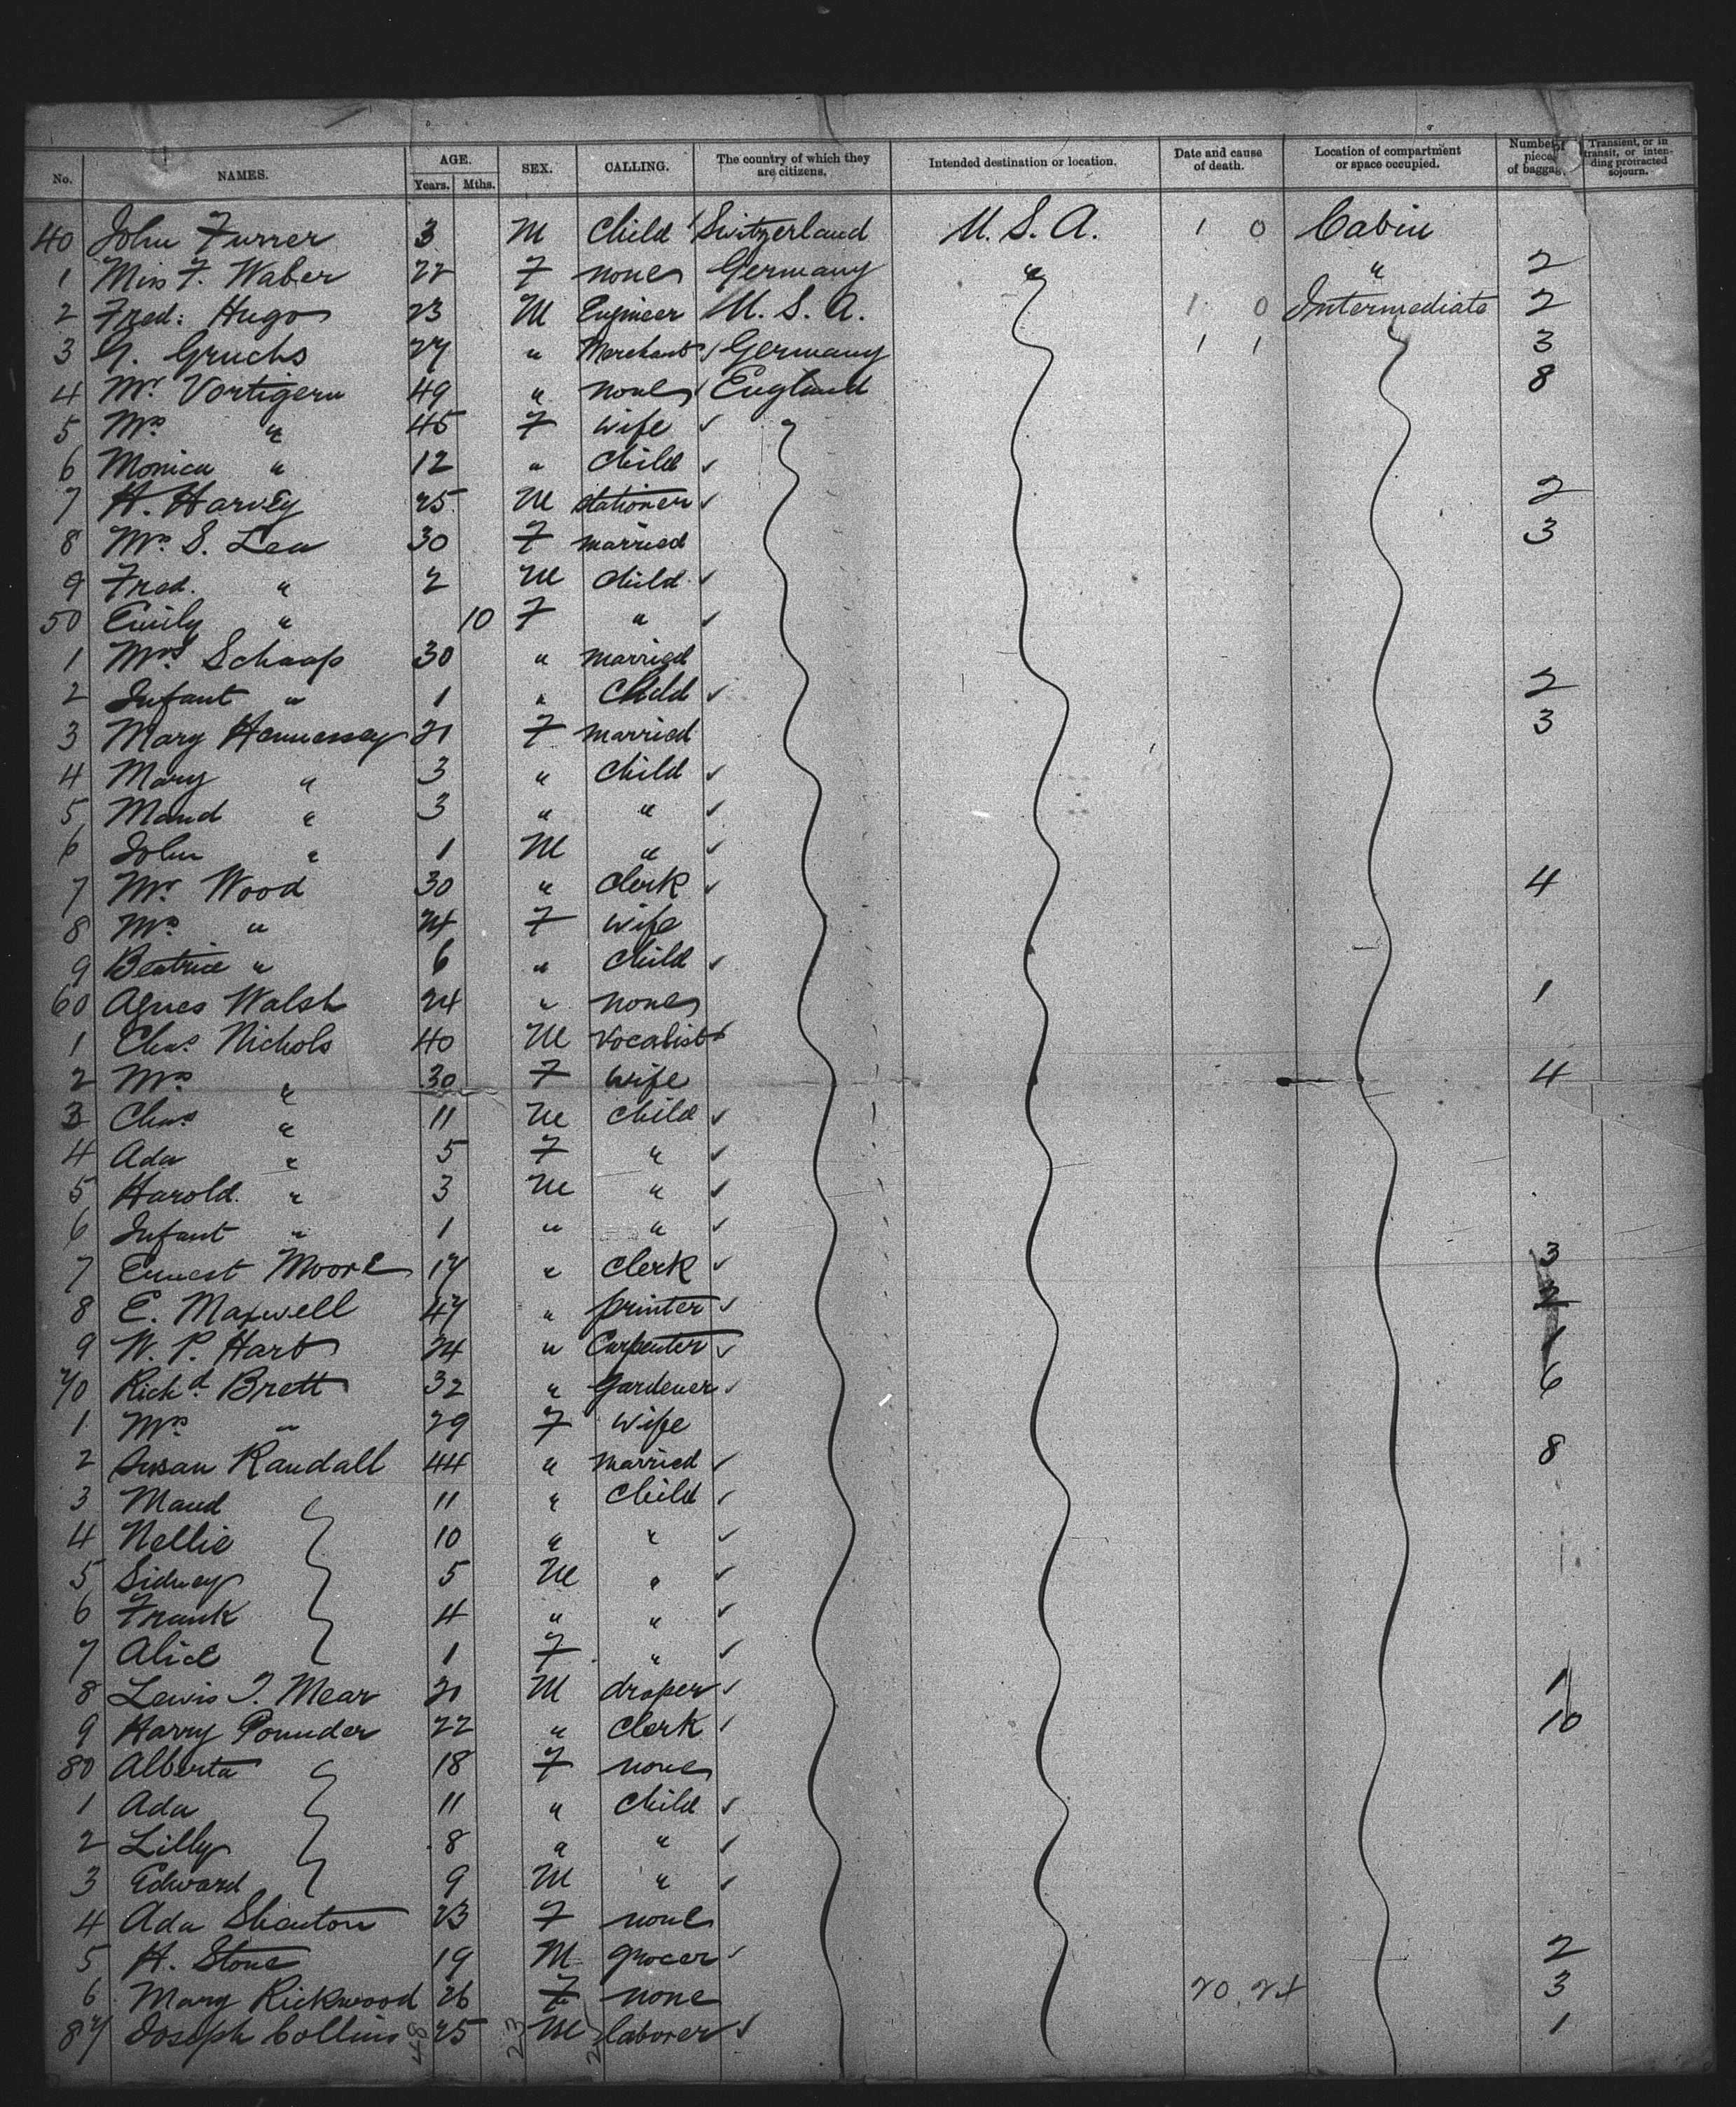 No. NAMES. AGE. Years. Mths. SEX. CALLING. The country of which they are citizens. Intended destination or location. Date and cause of death. Location of compartment or space occupied. Number of pieces of baggage. Transient, or in transit, or intending protracted sojourn.
40 John Furrer 3 M Child Switzerland U. S. A. 1 0 Cabin
1 Miss F. Waber 22 F none Germany " " 2
2 Fred: Hugo 23 M Engineer U. S. A. 1 0 Intermediate 2
3 G. Gruchs 27 " Merchant ✓ Germany 1 1 3
4 Mr. Vortigern 49 " none ✓ England 8
5 Mrs " 45 F wife ✓
6 Monica " 12 " Child ✓
7 H. Harvey 25 M stationer ✓ 2
8 Mrs S. Lea 30 F married 3
9 Fred. " 2 M child ✓
50 Emily " 10 F " ✓
1 Mrs Schaap 30 " married
2 Infant " 1 " Child ✓ 2
3 Mary Hennessey 21 F married 3
4 Mary " 3 " Child ✓
5 Maud " 3 " " ✓
6 John " 1 M " ✓
7 Mr. Wood 30 " Clerk ✓ 4
8 Mrs " 24 F wife
9 Beatrice " 6 " Child ✓
60 Agnes Walsh 24 " none 1
1 Chas Nichols 40 M Vocalist ✓
2 Mrs " 30 F wife 4
3 Chas " 11 M child ✓
4 Ada " 5 F " ✓
5 Harold. " 3 M " ✓
6 Infant " 1 " " ✓
7 Ernest Moore 17 " Clerk ✓ 3
8 E. Maxwell 47 " printer ✓ 2
9 W. P. Hart 24 " Carpenter ✓ 1
70 Richd Brett 32 " Gardener ✓ 6
1 Mrs " 29 F wife
2 Susan Randall 44 " married ✓ 8
3 Maud 11 " Child ✓
4 Nellie 10 " " ✓
5 Sidney 5 M " ✓
6 Frank 4 " " ✓
7 Alice 1 F " ✓
8 Lewis J. Mear 21 M draper ✓ 1
9 Harry Pounder 22 " Clerk ✓ 10
80 Alberta 18 F none
1 Ada 11 " Child ✓
2 Lilly 8 " " ✓
3 Edward 9 M " ✓
4 Ada Shenton 23 F none
5 H. Stone 19 M grocer ✓ 2
6 Mary Rickwood 26 F none 20.24 3
87 Joseph Collins 48 25 23 M laborer ✓ 1